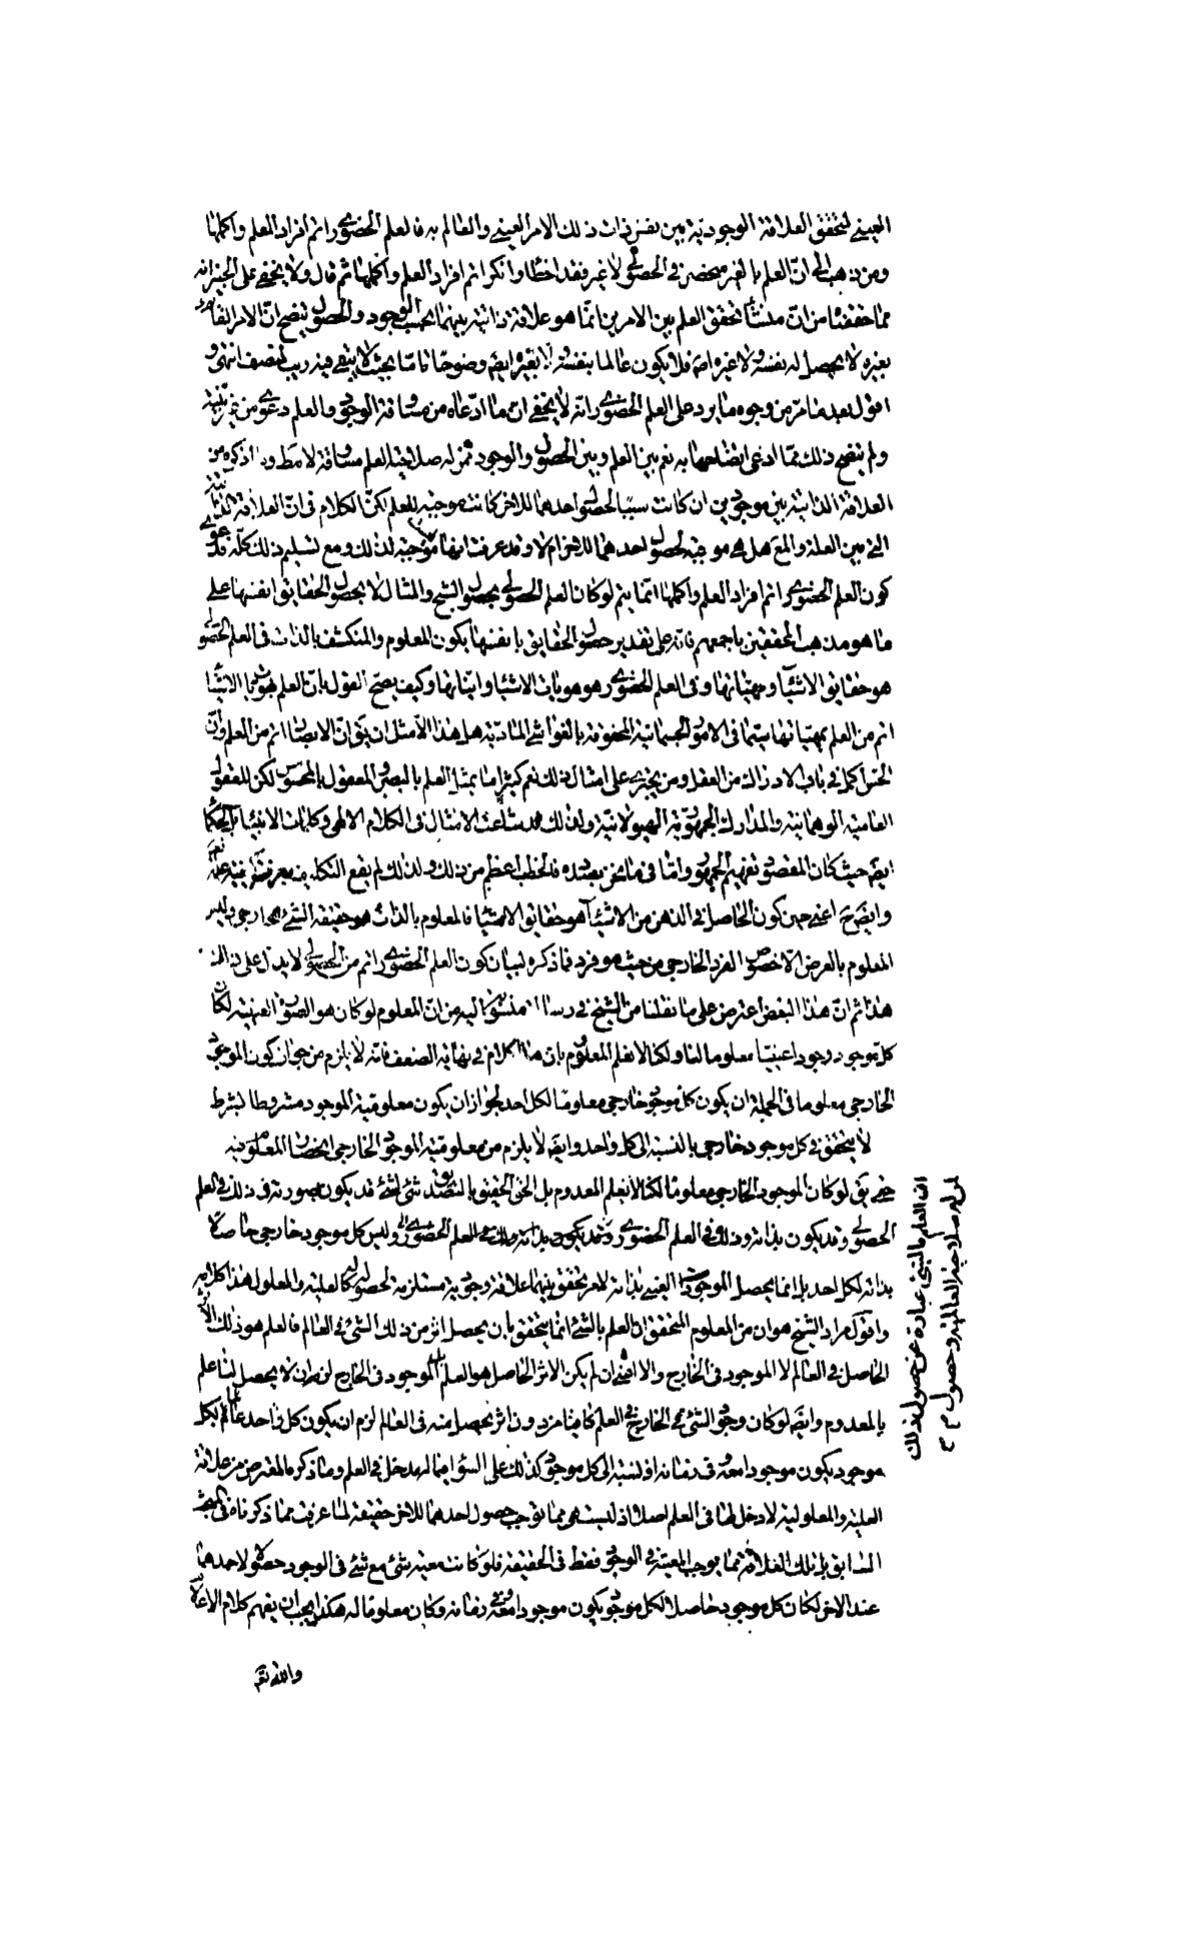 العينى لتحقق العلاقة الوجودية بين نفس ذات ذلك الامر العينى والعالم به فالعلم الحضورى اتم افراد العلم واكملها
ومن ذهب الى ان العلم بالغير منحصر فى الحصولى لا غير فقد اخطأ وانكر اتم افراد العلم واكملها ثم قال ولا يخفى على الخبير انه
مما حققنا من ان منشأ تحقق العلم بين الامرين انما هو علاقة ذاتية بينهما بحسب الوجود والحصول يتضح ان الامر القائم
بغيره لا يحصل له نفسه ولا غيره اصلا فلا يكون عالما بنفسه ولا بغيره ايضا وضوحا تاما بحيث لا يبقى فيه ريب لمنصف انتهى و
اقول بعد ما مر من وجوه ما يرد على العلم الحضورى انه لا يخفى ان ما ادعاه من مساوقة الوجود والعلم دعوى من غير بينة
ولم يتضح ذلك مما ادعى ايضاحها به نعم بين العلم وبين الحصول والوجود لمن له صلاحية العلم مساوقة لا مط وما ذكره من
العلاقة الذاتية بين موجودين ان كانت سببا لحصول احدهما للاخر كانت موجبة للعلم لكن الكلام فى ان العلاقة الذاتية
التى بين العلة والمع هل هى موجبة لحصول احدهما للاخر ام لا وقد عرفت انها موجبة لذلك ومع تسليم ذلك كله فدعوى
كون العلم الحضورى اتم افراد العلم واكملها انما يتم لو كان العلم الحصولى بحصول الشبح والمثال لا بحصول الحقايق انفسها على
ما هو مذهب المحققين باجمعهم فانه على تقدير حصول الحقايق بانفسها يكون المعلوم والمنكشف بالذات فى العلم الحصولى
هو حقايق الاشياء ومهياتها وفى العلم الحضورى هو هويات الاشياء وانياتها وكيف يصح القول بان العلم بهويات الاشياء
اتم من العلم بمهياتها سيما فى الامور الجسمانية المحفوفة بالغواشى المادية هل هذا الا مثل ان يق ان الابصار اتم من العلم وان
الحس اكمل فى باب الادراك من العقل ومن يجترى على امثال ذلك نعم كثيرا ما يمثل العلم بالبصر والمعقول بالمحسوس لكن للعقول
العامية الوهمانية والمدارك الجمهورية الهيولانية ولذلك قد شاعت الامثال فى الكلام الالهى وكلمات الانبياء والحكماء
ايضا حيث كان المقصود تفهيم الجمهور واما فى ما نحن بصدده فالخطب اعظم من ذلك ولذلك لم يقع التكليف بمعرفته
وايضا ح اعنى حين كون الحاصل فى الذهن من الاشياء هو حقايق الاشياء فالمعلوم بالذات هو حقيقة الشئ الخارجى وليس
المعلوم بالعرض الا خصوص الفرد الخارجى من حيث هو فرد فما ذكره لبيان كون العلم الحضورى اتم من الحصولى لا يدل على ذلك
هذا ثم ان هذا البعض اعترض على ما نقلنا من الشيخ فى رسالة منسوبة اليه من ان المعلوم لو كان هو الصورة العينية لكان
كل موجود وجودا عينيا معلوما لنا ولكنا لا نعلم المعدوم بان هذا الكلام فى نهاية الضعف فانه لا يلزم من جواز كون الموجود
الخارجى معلوما فى الجملة ان يكون كل موجود خارجى معلوما لكل احد لجواز ان يكون معلومية الموجود مشروطا بشرط
لا يتحقق فى كل موجود خارجى بالنسبة الى كل واحد وايضا لا يلزم من معلومية الموجود الخارجى انحصار المعلومية فيه
حتى يق لو كان الموجود الخارجى معلوما لكنا لا نعلم المعدوم بل الحق الحقيق بالتصديق ان شئ لشئ قد يكون بصورته وذلك فى العلم
الحصولى وقد يكون بذاته وذلك فى العلم الحضورى وليس كل موجود خارجى حاصلا
بذاته لكل احد بل انما يحصل الموجود العينى بذاته لامر يتحقق بينهما علاقة وجودية مستلزمة لحصوله له كالعلية والمعلولية هذا كلامه
واقول مراد الشيخ هو ان من المعلوم المتحقق ان العلم بالشئ انما يتحقق بان يحصل اثر من ذلك الشئ فى العالم فالعلم هو ذلك الاثر
الحاصل فى العالم لا الموجود فى الخارج والا اى ان لم يكن الاثر الحاصل هو العلم بل الموجود فى الخارج لزم ان لا يحصل لنا علم
بالمعدوم وايضا لو كان وجود الشئ فى الخارج فى العلم كافيا من دون اثر يحصل منه فى العالم لزم ان يكون كل واحد عالما بكل
موجود يكون موجودا معه فى زمانه اذ نسبته الى كل موجود كذلك على السواء فيما له مدخل فى العلم وما ذكره المعترض من علاقة
العلية والمعلولية لا دخل لها فى العلم اصلا اذ ليست هى مما توجب حصول احدهما للاخر حقيقة لما عرفت مما ذكرناه فى المبحث
السابق بل تلك العلاقة مما يوجب المعية فى الوجود فقط فى الحقيقة فلو كانت معية شئ مع شئ فى الوجود حصولا لاحدهما
عند الاخر لكان كل موجود حاصلا لكل موجود يكون موجودا معه فى زمانه وكان معلوما له هكذا يجب ان يفهم كلام الاعلام
والله يعم
ان العلم بالشئ عبارة عن حصول ذلك
لمن له صلاحية العالمية وحصول